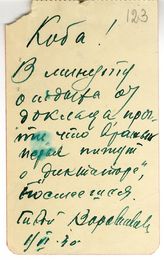 123
Коба!
В минуту
отдыха от
доклада про-
что
пишут
о "диктаторе",
посмеешься
твой Ворошилов
1/VI 30